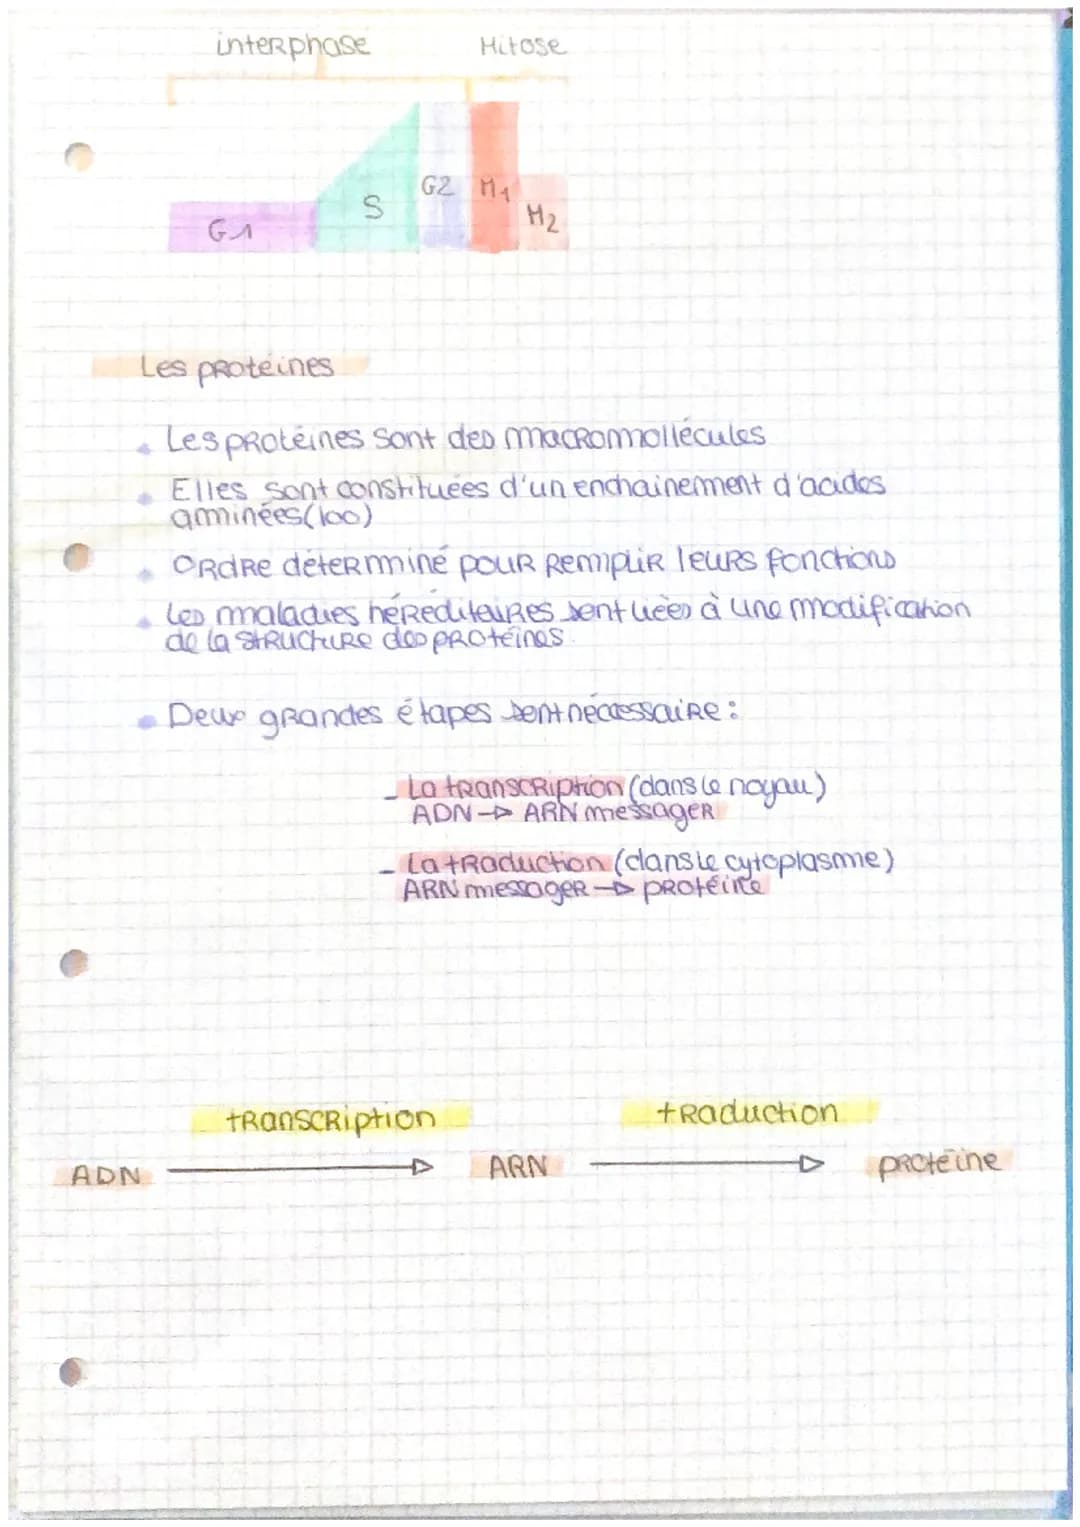 interphase Mitose
G1 S G2 M1 M2
Les protéines
Les protéines sont des macromollécules
Elles sont constituées d'un enchainement d'acides
aminées (100)
Ordre déterminé pour remplir leurs fonctions
Les maladies héréditaires sont liées à une modification
de la structure des protéines.
Deux grandes étapes sont nécessaire :
- La transcription (dans le noyau)
ADN → ARN messager
- La traduction (dans le cytoplasme)
ARN messager → protéine
transcription traduction
ADN → ARN → protéine